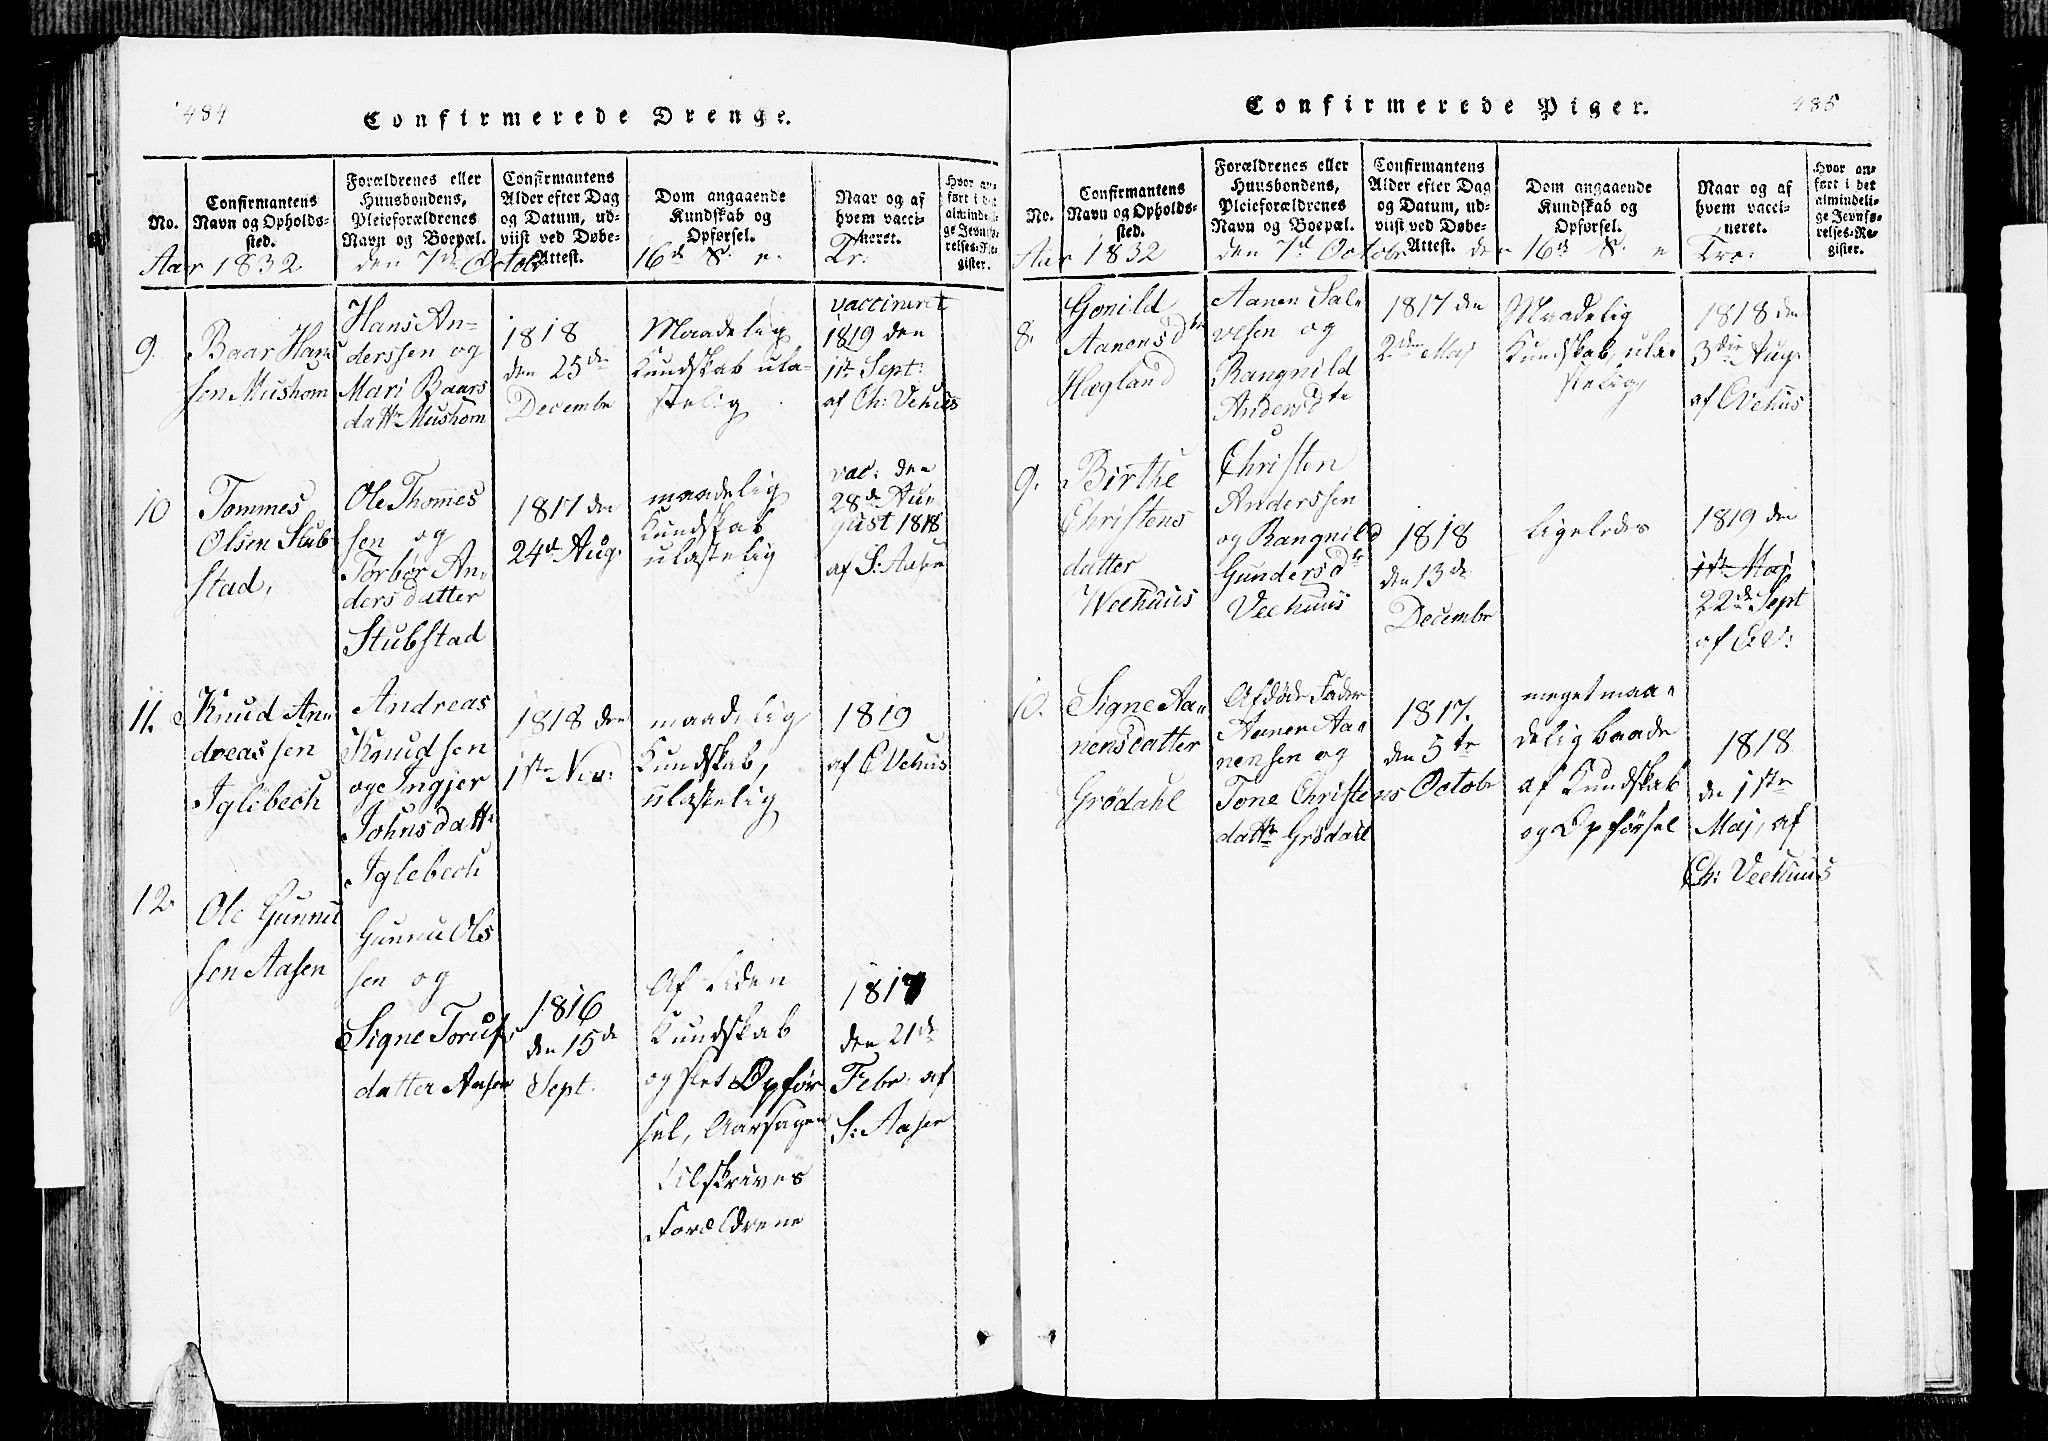 484
Confirmerede Drenge.
No.
Confirmantens
Navn og Opholds-
sted.
Forældrenes eller
Huusbondens,
Pleieforældrenes
Navn og Boepæl.
Confirmantens
Alder efter Dag
og Datum, ud-
viist ved Døbe-
Attest.
Dom angaaende
Kundskab og
Opførsel.
Naar og af
hvem vacci-
neret.
Hvor an-
ført i det
almindeli-
ge Jevnfø-
relses-Re-
gister.
Aar 1832 den 7de Octob 16de S. e. Tr:
9.
Baar Han
sen Mushom
Hans An-
derssen og
Mari Baars
dattr Mushom
1818
den 25de
Decembr
Maadelig
Kundskab ula-
stelig
vaccineret
1819 den
11te Sept:
af Ch: Vehus
10
Tommes
Olsen Stub
stad,
Ole Thomes
sen og
Torbor An-
ders datter
Stubstad
1817 den
24d Aug.
maadelig
Kundskab
ulastelig
vac: den
28de Au-
gust 1818
af S: Aasen
11.
Knud An-
dreas sen
Iglebech
Andreas
Knudsen
og Ingjer
Johns datt:
Iglebech
1818 den
1ste Nov:
maadelig
Kundskab,
ulastelig
1819
af C Vehus
12.
Ole Gunnu
sen Aasen
Gunnu Ols
sen og
Signe Torufs
datter Aasen
1816
den 15de
Sept.
Af liden
Kundskab
og slet Opfør
sel, Aarsagen
tilskrives
Forældrene
1817
den 21de
Febr. af
S: Aasen
485
Confirmerede Piger.
No.
Confirmantens
Navn og Opholds-
sted.
Forældrenes eller
Huusbondens,
Pleieforældrenes
Navn og Boepæl.
Confirmantens
Alder efter Dag
og Datum, ud-
viist ved Døbe-
Attest.
Dom angaaende
Kundskab og
Opførsel.
Naar og af
hvem vacci-
neret.
Hvor an-
ført i det
almindeli-
ge Jevnfø-
relses-Re-
gister.
Aar 1832 den 7de Octobr den 16de S. e Tre:
8.
Gonild
Aanensdtr
Hægland
Aanen Sal-
vesen og
Rangnild
Andersdtr
1817 den
2den Maj
Maadelig
Kundskab, ula-
stelig
1818 den
3die Aug.
af C Vehus
9.
Birthe
Christens
datter
Weehuus
Christen
Anderssen
og Rangnild
Gundersdtr
Veehuus
1818
den 13de
Decembr
ligeledes
1819 den
1ste Maj
22de Sept
af C.V:
10.
Signe Aa-
nensdatter
Grødahl
Afdøde Fader
Aanen Aa-
nensen og
Tone Christens
dattr Grødahl
1817.
den 5te
Octobr
meget maa-
delig baade
af Kundskab
og Opførsel
1818
den 1ste
Maj, af
Ch: Veehuus